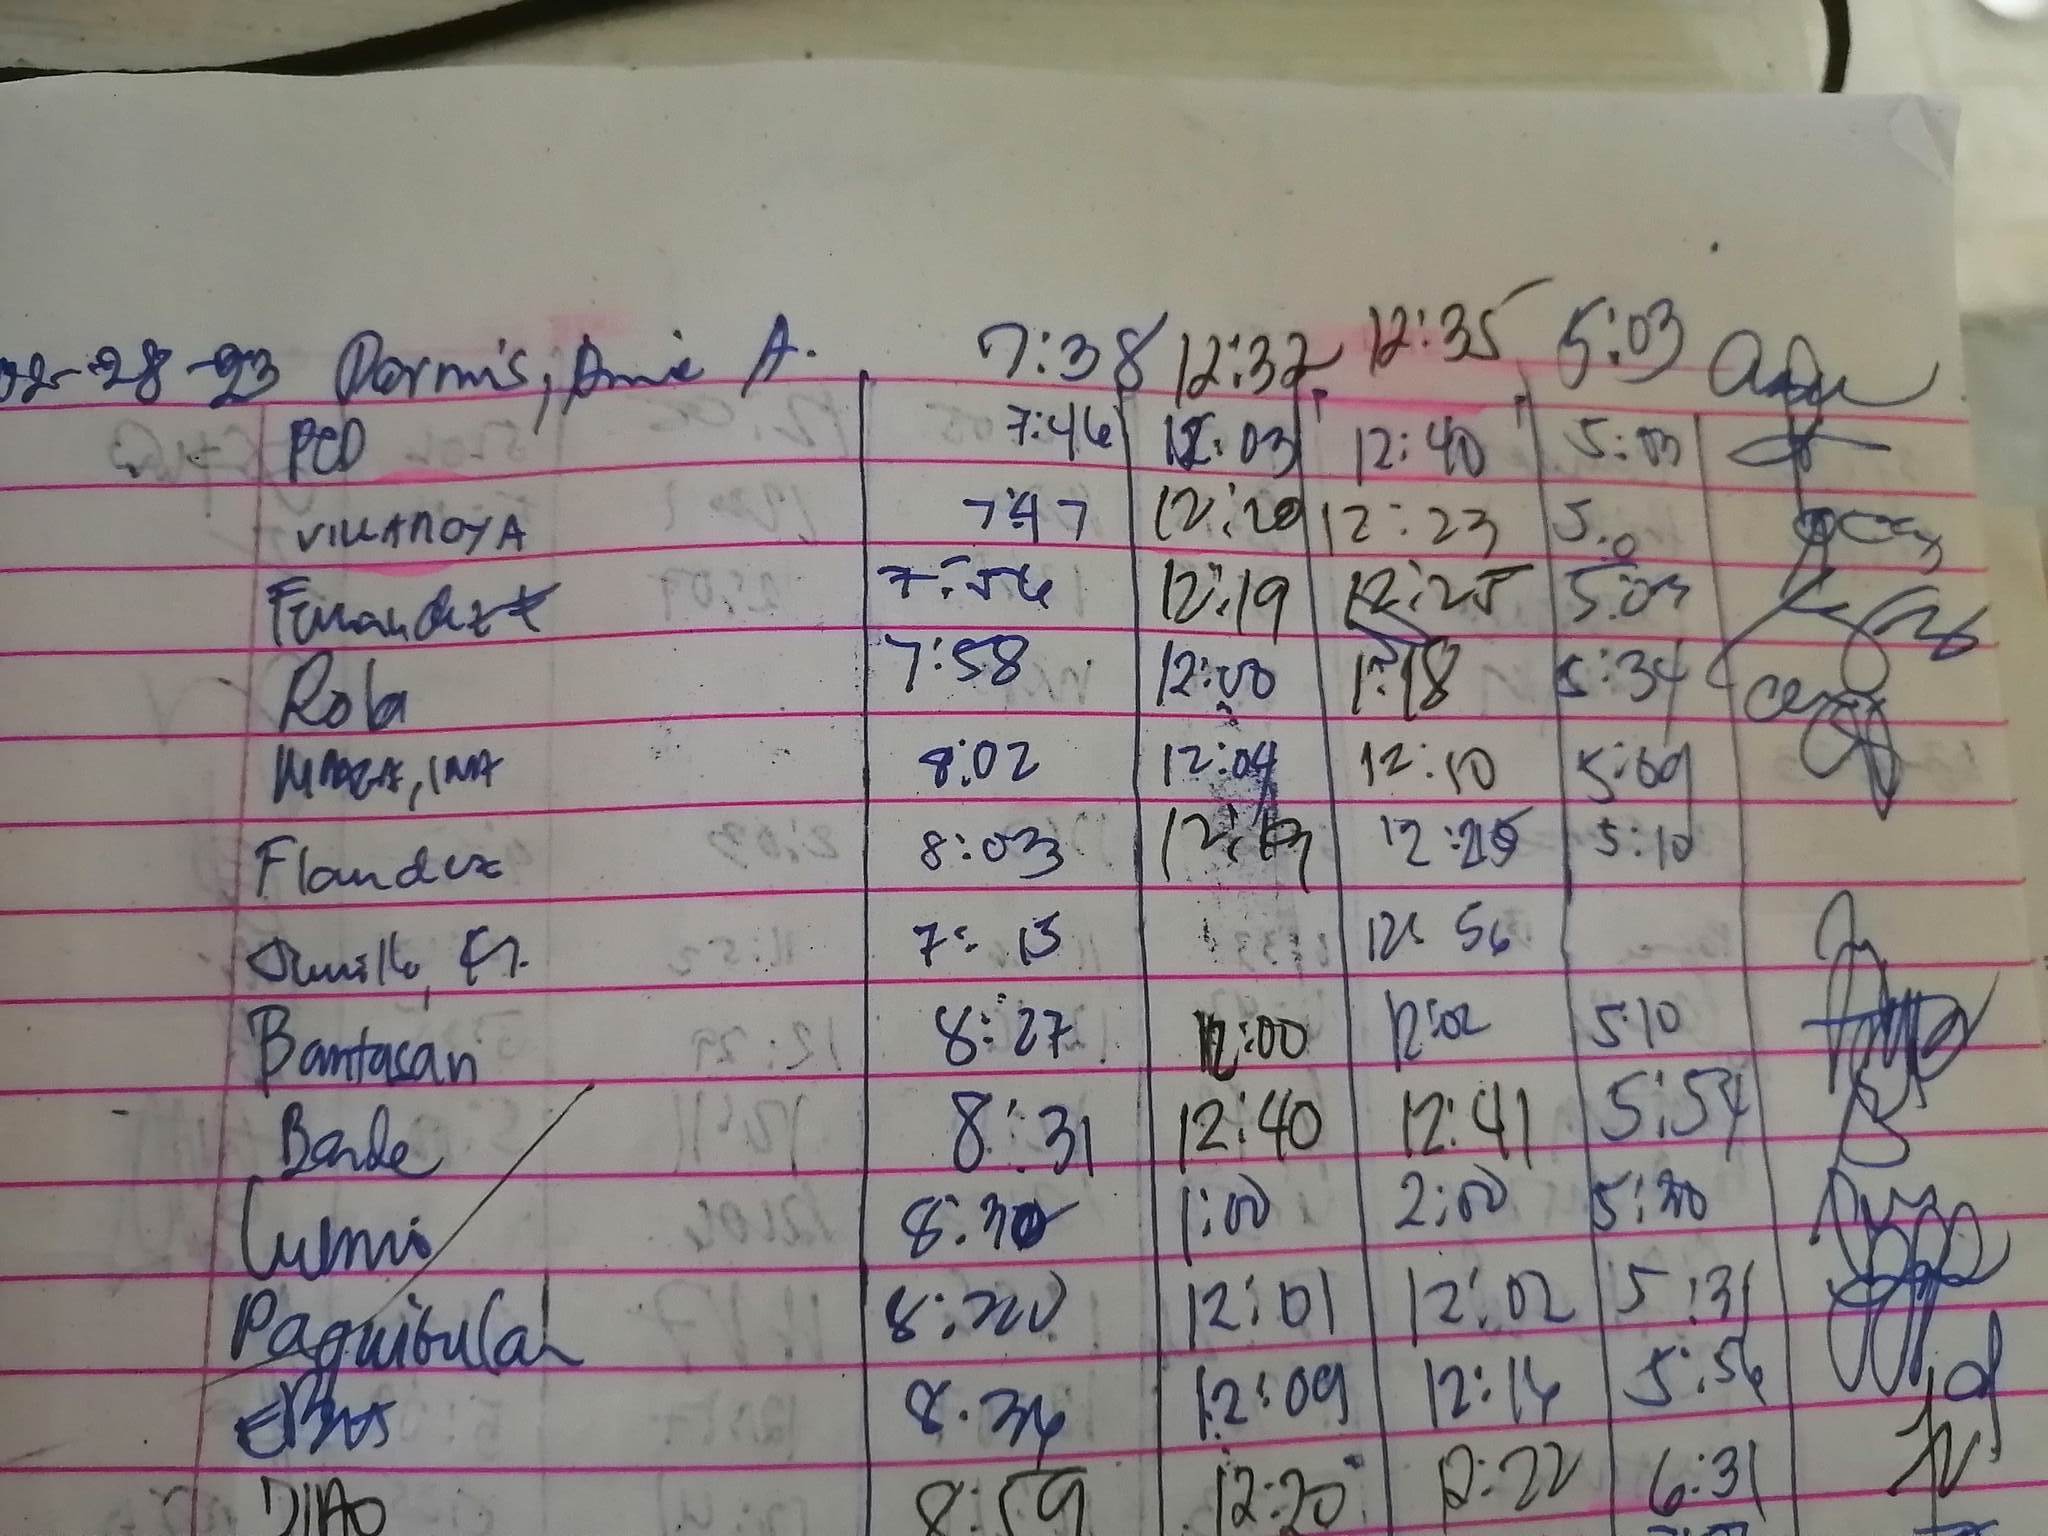 02-28-23 Dormis, Amie A. 7:38 12:32 12:35 5:03
PCD 7:46 12:03 12:40 5:03
VILLANOYA 7:47 12:20 12:23 5:0
Fernandez 7:56 12:19 12:25 5:03
Rola 7:58 12:00 1:18 5:34
8:02 12:04 12:10 5:09
Flandez 8:03 12:25 5:10
7:13 12:56
Bantasan 8:27 12:00 12:02 5:10
Bande 8:31 12:40 12:41 5:54
8:30 1:00 2:00 5:30
Paguibulan 12:01 12:02 5:31
8:34 12:09 12:14 5:56
DIAO 8:59 12:20 12:22 6:31